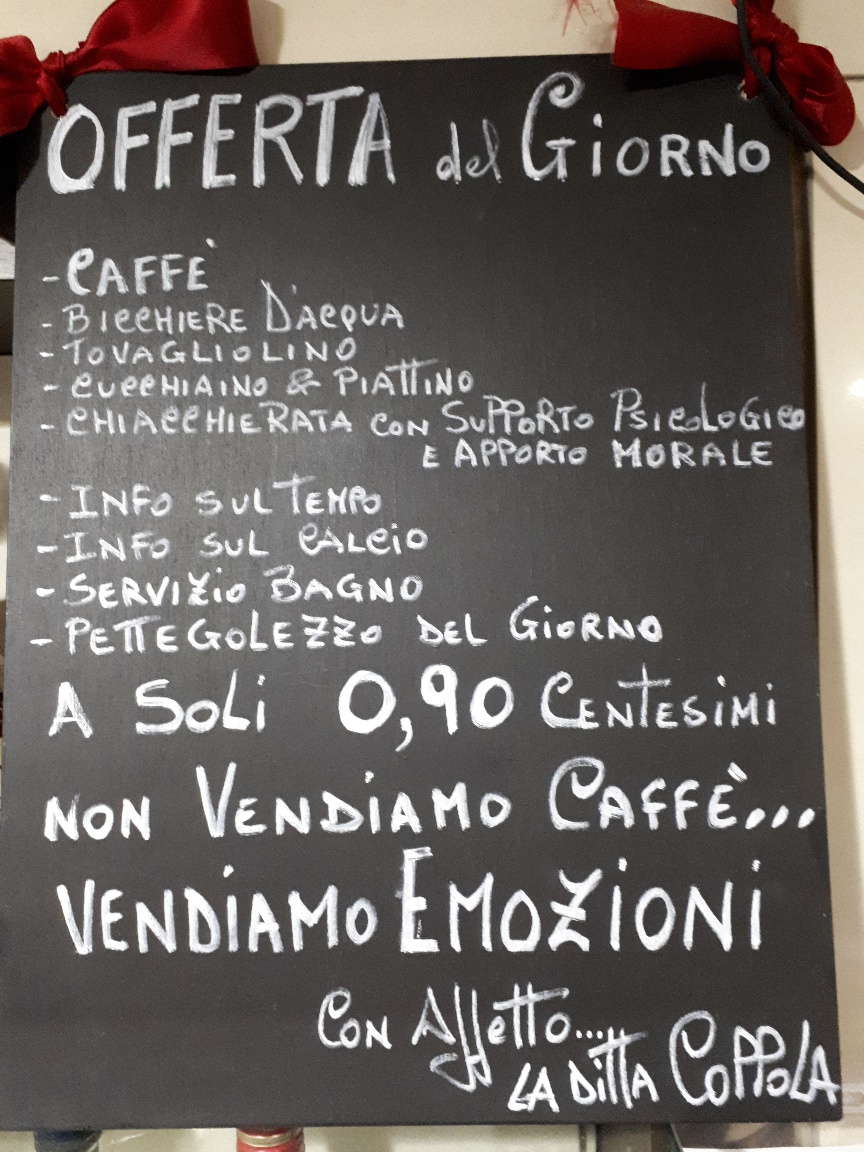 OFFERTA del GiORNO
- CAFFE'
- BICCHIERE D'ACQUA
- TOVAGLIOLINO
- CUCCHIAINO & PIATTINO
- CHIACCHIERATA CON SUPPORTO PSICOLOGICO
E APPORTO MORALE
- INFO SUL TEMPO
- INFO SUL CALCiO
- SERVIZiO BAGNO
- PETTEGOLEZZO DEL GiORNO
A SOLi 0,90 CENTESiMi
NON VENDiAMO CAFFÈ...
VENDiAMO EMOZiONi
CON Affetto...
LA DiTTA COPPOLA